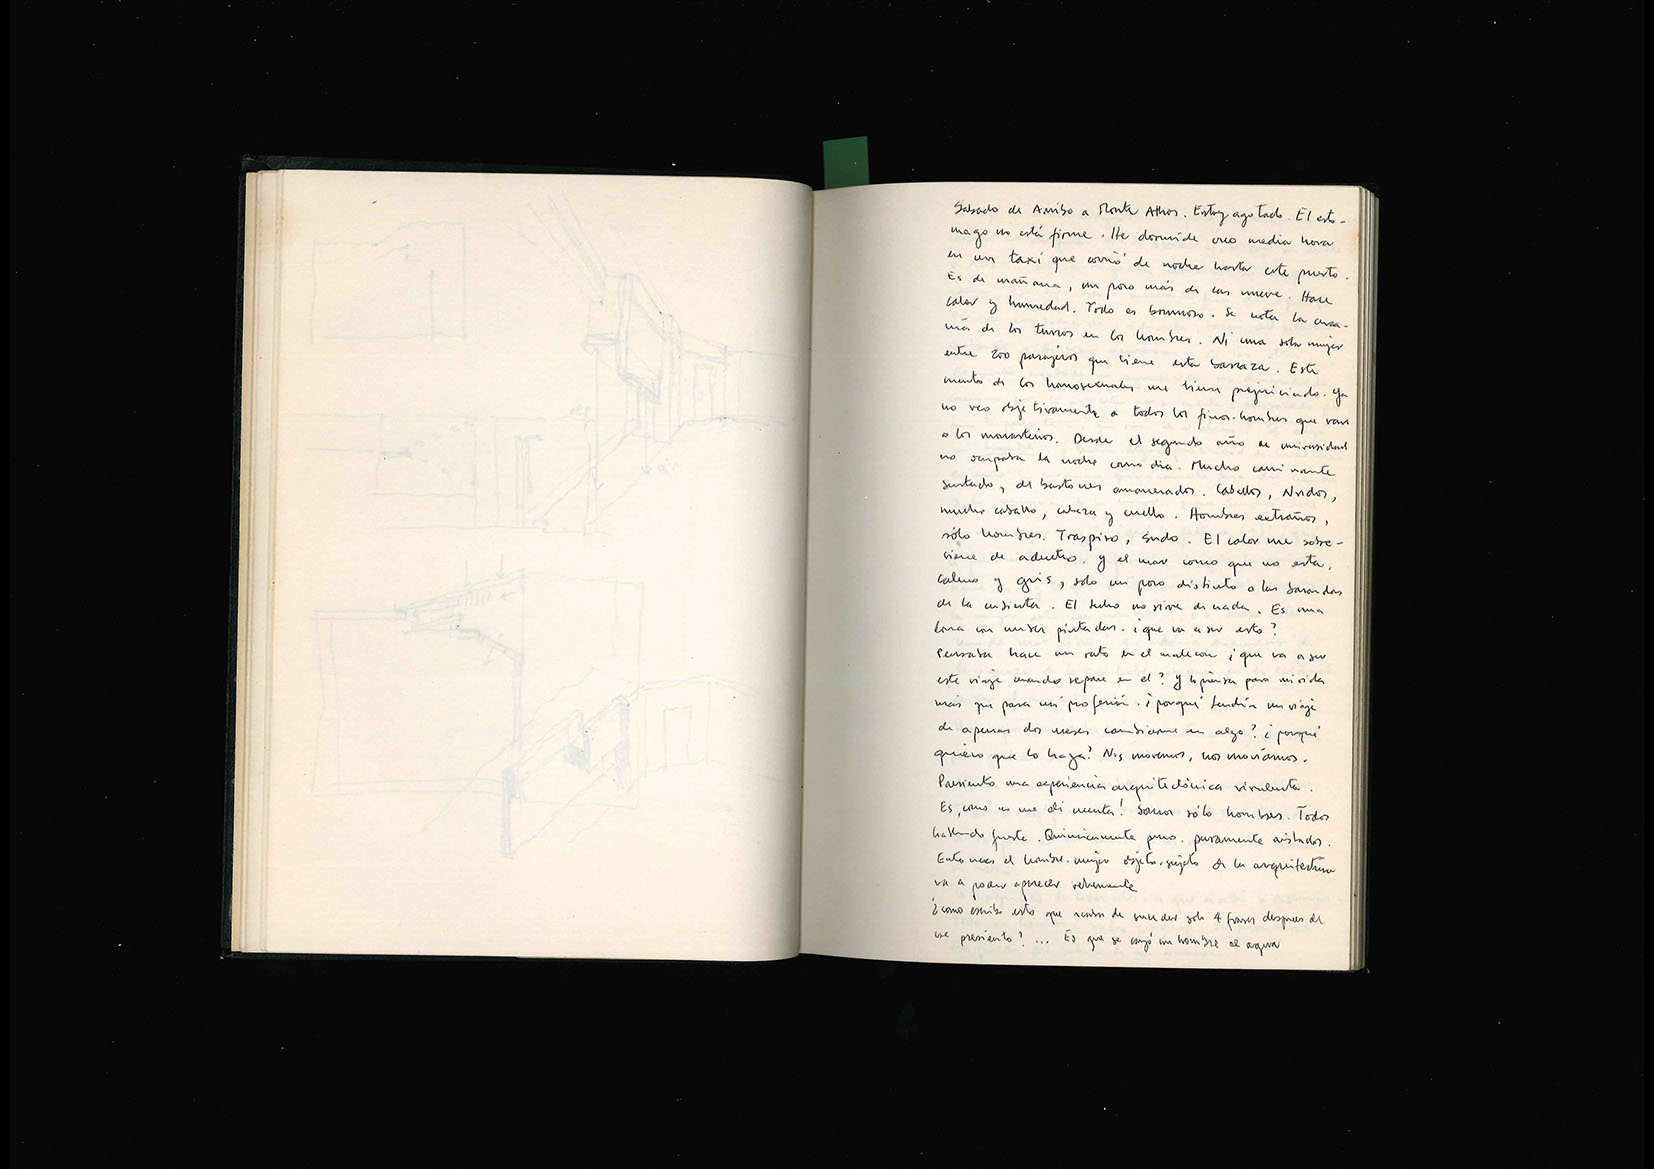 Sabado de Arribo a Monte Athos. Estoy agotado. El esto-
mago no está firme. He dormido creo media hora
en un taxi que corrió de noche hasta este puerto.
Es de mañana, un poco más de las nueve. Hace
calor y humedad. Todo es bromoso. Se nota la cerca-
nía de los turcos en los hombres. Ni una sola mujer
entre 200 pasajeros que tiene esta barcaza. Este
cuento de los homosexuales me tiene prejuiciado. Ya
no veo objetivamente a todos los finos-hombres que van
a los monasterios. Desde el segundo año de universidad
no ocupaba la noche como dia. Mucho caminante
juntado, de bastones amanerados. Cabellos, Nudos,
mucho cabello, cabeza y cuello. Hombres extraños,
sólo hombres. Traspiro, sudo. El calor me sobre-
viene de adentro. Y el mar como que no está,
calmo y gris, solo un poco distinto a las barandas
de la cubierta. El techo no sirve de nada. Es una
lona con nubes pintadas. ¿que va a ser esto?
Pensaba hace un rato en el malecon ¿que va a ser
este viaje cuando repare en el? Y lo pensaba para mi vida
más que para mi profesión. ¿porqué tendría un viaje
de apenas dos meses cambiarme en algo? ¿porqué
quiero que lo haga? Nos movemos, nos movíamos.
Presiento una experiencia arquitectónica virulenta.
Es, como no me di cuenta! Somos sólo hombres. Todos
hablando fuerte. Quimicamente puro. puramente aislados.
Entonces el hombre-mujer objeto-sujeto de la arquitectura
va a poder aparecer vehemente
¿como escribo esto que acaba de suceder solo 4 frases despues de
ese presiento? ... Es que se cayó un hombre al agua